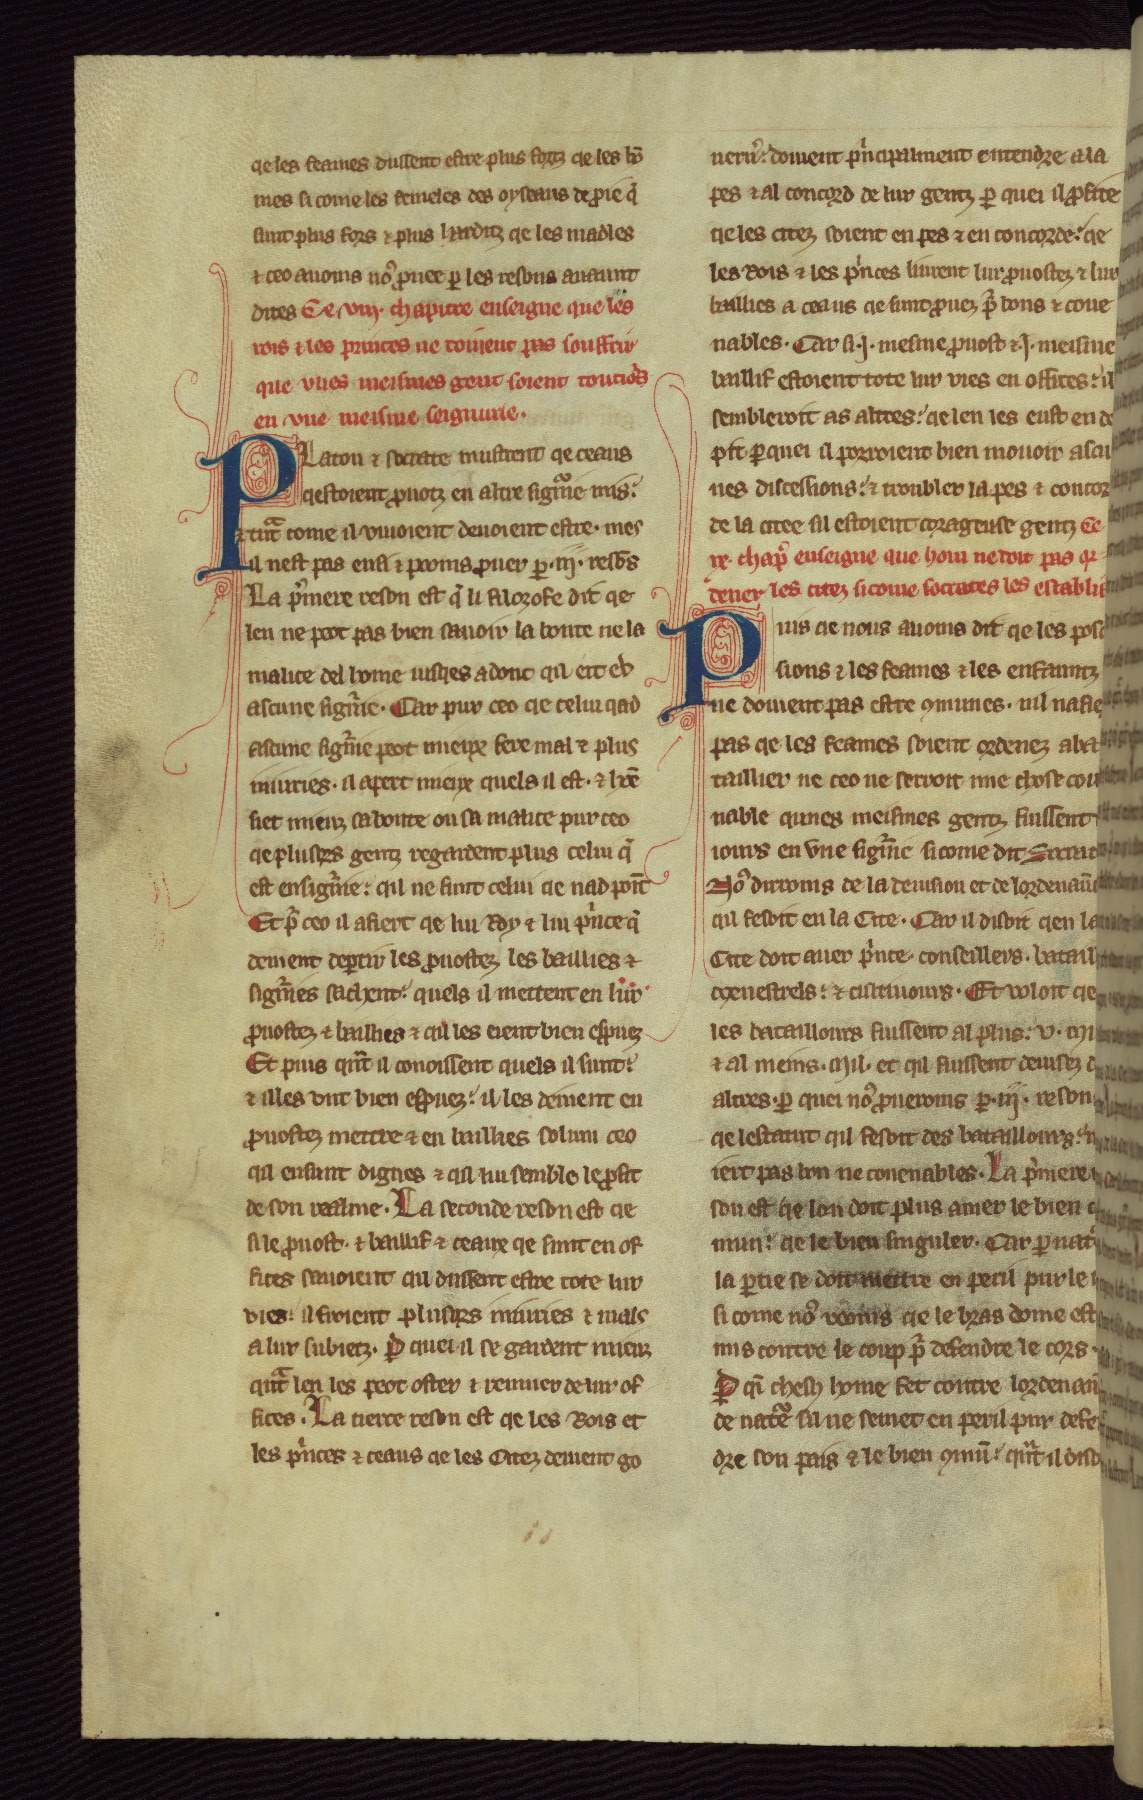 qe les feames dussent estre plus fortz qe les hō
mes si come les femeles des oyseaus de proie q̄
sunt plus fors ⁊ plus harditz qe les madles
⁊ ceo auoms no᷒ prouee ꝑ les resons auaunt
dites Ce .viij. chapitre enseigne que les
rois ⁊ les princes ne doiuent pas souffrir
que vnes meismes gent soient toutiors
en vne meisme seignurie.
Platon ⁊ socrate mustrent qe ceaus
qestoient prouotz en altre signͣie mis:
tut come il viuoient deuoient estre. mes
il nest pas ensi ⁊ prouoms prouer ꝑ .iij. resōs
La pͥmere reson est q̄ li filozofe dit qe
len ne peot pas bien sauoir la bonte ne la
malice del home iusqes adont qil eit eu
ascune signͥie. Car pur ceo qe celui qad
ascune signͥie peot mieux fere mal ⁊ plus
iniuries. il apert mieux quels il est. ⁊ hōe
siet mieuz sa bonte ou sa malice pur ceo
qe plusors gentz regardent plus celui q̄
est en signͥie: qil ne funt celui qe nad point
Et pͬ ceo il afiert qe lui Roy ⁊ lui pͥnce q̄
deiuent deꝑtir les prouostez les baillies ⁊
signͥies sachent: quels il mettent en lur
prouostez ⁊ baillies ⁊ qil les eient bien esprouez
Et puis qͣnt il conoissent quels il sunt:
⁊ illes unt bien esprouez: il les deiuent en
prouostez mettre ⁊ en baillies solum ceo
qil ensunt dignes ⁊ qil lui semble le profit
de son realme. La seconde reson est qe
si le prouost. ⁊ baillif ⁊ ceaux qe sunt en of
fices sauoient qil dussent estre tote lur
vies: il firoient plusors iniuries ⁊ mals
a lur subietz. Ꝑ quei il se gardent mieuz
qͣnt len les peot oster ⁊ remuer de lur of
fices. La tierce reson est qe les Rois et
les pͥnces ⁊ ceaus qe les Citez deiuent go
uern̄: doiuent pͥncipalment entendre a la
pes ⁊ al concord de lur gentz ꝑ quei il profite
qe les citez soient en pes ⁊ en concorde: qe
les Rois ⁊ les pͥnces liurent lur prouostez ⁊ lur
baillies a ceaus qe sunt prouez pͬ bons ⁊ coue
nables. Car si .j. mesme prouost ⁊ .j. meisme
baillif estoient tote lur vies en offices: il
sembleroit as altres: qe len les eust en de
pit ꝑ quei il porroient bien mouoir ascu
nes discessions: ⁊ troubler la pes ⁊ concor
de la citee sil estoient corageuse gentz Ce
.ix. chap̄ enseigne que hom ne doit pas or
dener les citez si come socrates les establi
Puis qe nous auoms dit qe les pos
sions ⁊ les feames ⁊ les enfauntz
ne doiuent pas estre ꝯmunes. nil nafie
pas qe les feames soient ordenez a ba
taillier ne ceo ne serroit mie chose cou
nable qunes meismes gentz fuissent
iours en vne signͥie si come dit Socrat
No᷒ dirroms de la deuision et de lordenaūc
qil fesoit en la Cite. Car il disoit qen la
Cite doit auer pͥnce. conseillers. bataill
menestrels: ⁊ cultiuours. Et voloit qe
les bataillours fuissent al plus: .v. mi
⁊ al meins. mil. et qil fuissent deuisez d
altres. ꝑ quei no᷒ proueroms ꝑ .iij. reson
qe lestatut qil fesoit des bataillours: n
iert pas bon ne couenables. La pͥmere
son est qe lon doit plus amer le bien c
mun: qe le bien singuler. Car ꝑ natͬ
la ꝑtie se doit mettre en peril pur le
si come no᷒ veoms qe le bras dome est
mis contre le coup pͬ defendre le cors.
Ꝑ q̄i chesq home fet contre lordenaū
de natͬe sil ne se met en peril pur defe
dre son pais ⁊ le bien ꝯmū: qͣnt il diso